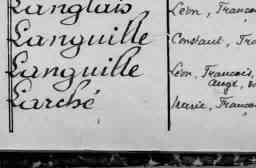 Langlais Léon, Franço
Languille Constant, Fra
Languille Léon, François,
Ange,
Larché Marie, Franço